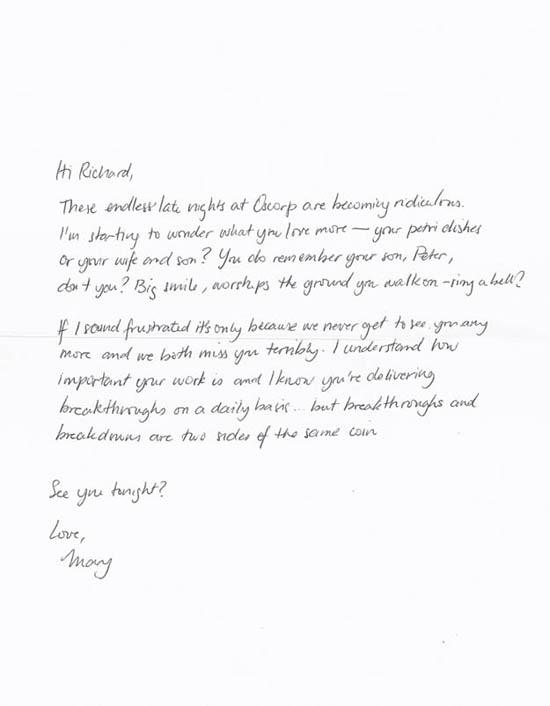 Hi Richard,
These endless late nights at Oscorp are becoming ridiculous.
I'm starting to wonder what you love more — your petri dishes
or your wife and son? You do remember your son, Peter,
don't you? Big smile, worships the ground you walk on - ring a bell?
If I sound frustrated it's only because we never get to see you any
more and we both miss you terribly. I understand how
important your work is and I know you're delivering
breakthroughs on a daily basis... but breakthroughs and
breakdowns are two sides of the same coin
See you tonight?
Love,
Mary